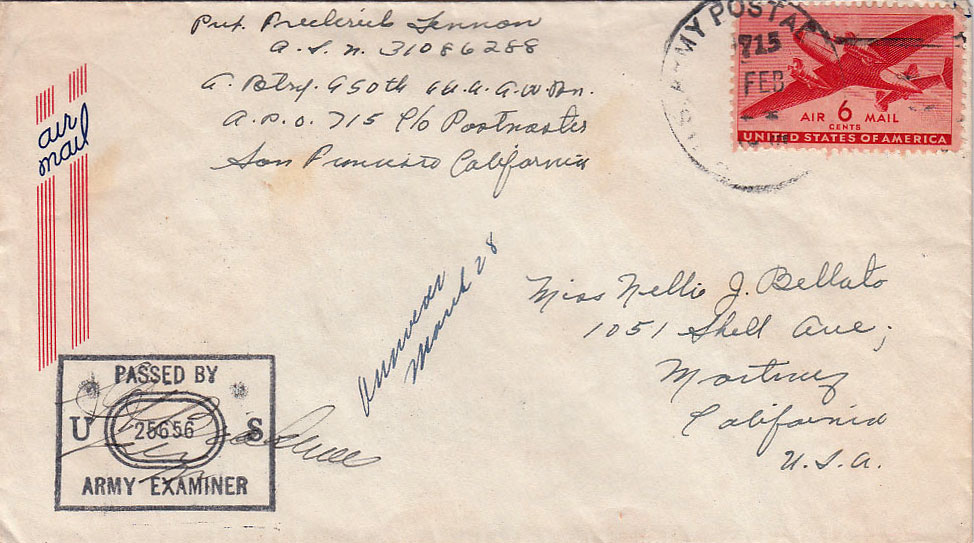 Pvt. Frederick Lennon
A.S.N. 31086288
A. Btry. 950th AA.A.A.W Bn.
A.P.O. 715 C/O Postmaster
San Francisco California
ARMY POSTAL
715
FEB
AIR 6 MAIL
CENTS
UNITED STATES OF AMERICA
air
mail
Miss Nellie J. Bellato
1051 Shell Ave;
Martinez
California
U.S.A.
March 28
PASSED BY
U 25656 S
ARMY EXAMINER